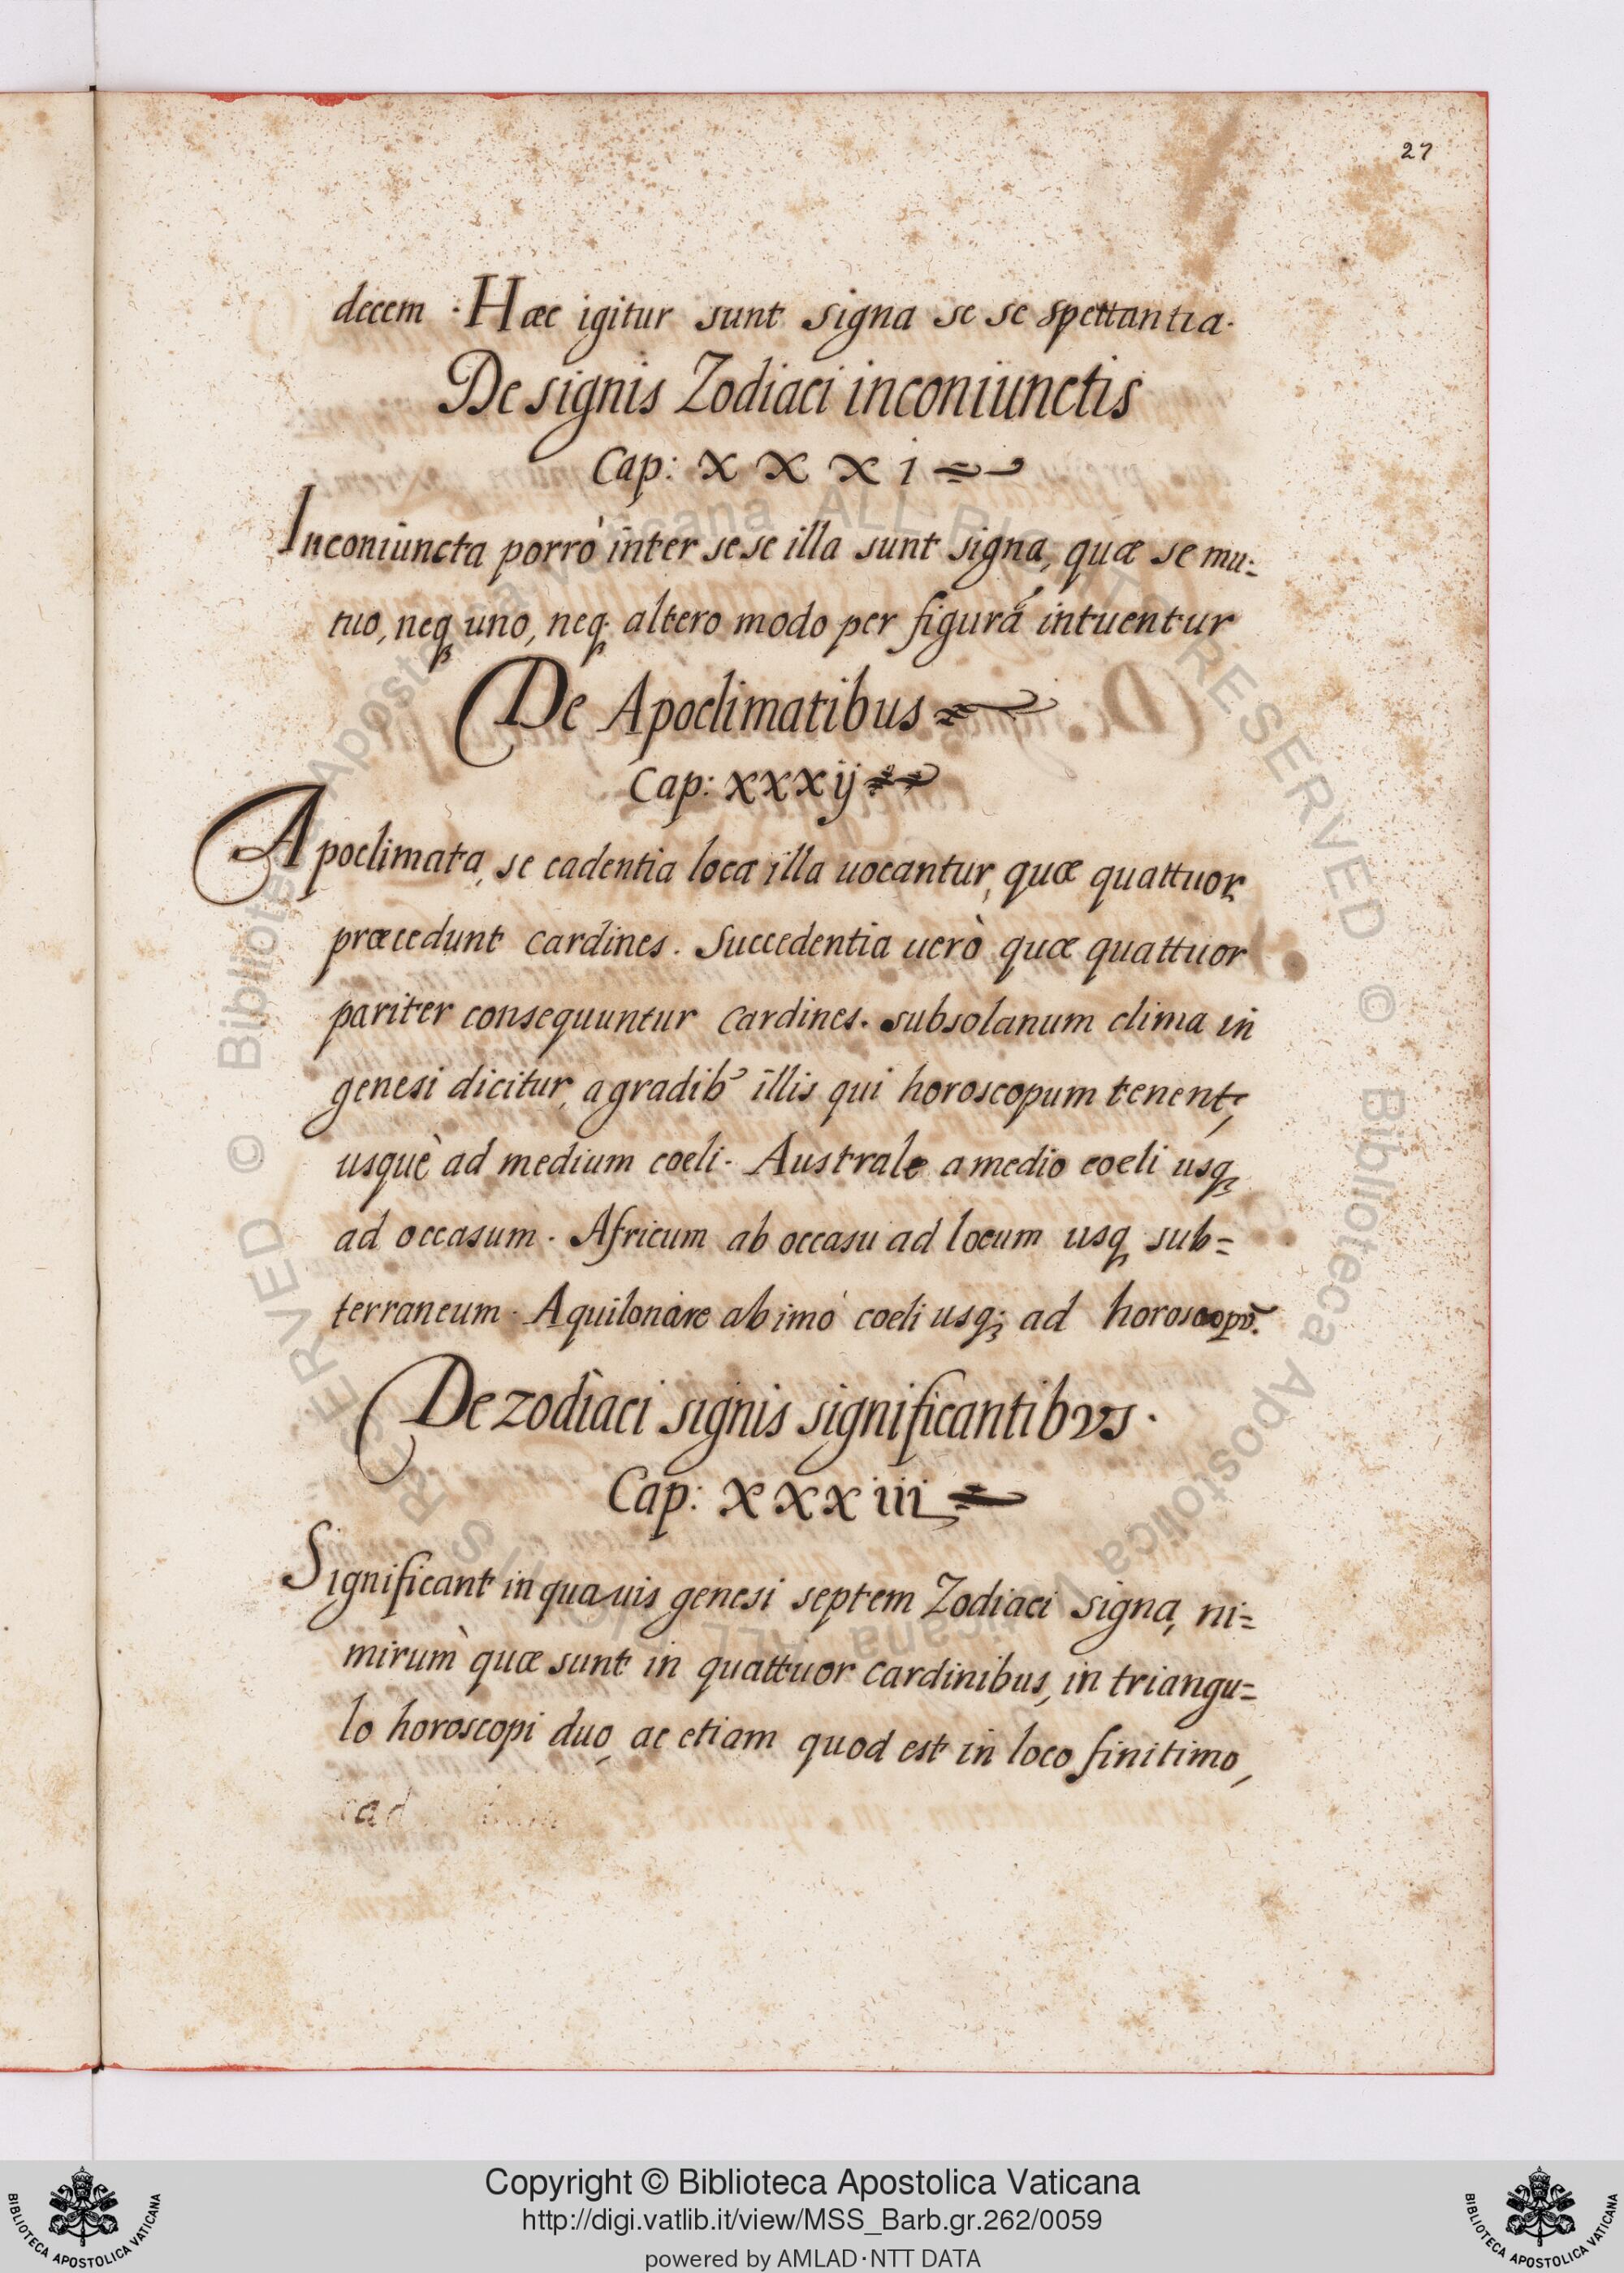 27
decem . Hæc igitur sunt signa se se spettantia.
De signis Zodiaci inconiunctis
Cap: X X X i
Inconiuncta porrò inter sese illa sunt signa, quæ se mu:
tuo, neqꝫ uno, neqꝫ altero modo per figurã intuentur
De Apoclimatibus
Cap: xxxij
Apoclimata, se cadentia loca illa uocantur, quæ quattuor
præcedunt cardines. Succedentia uerò quæ quattuor
pariter consequuntur cardines. subsolanum clima in
genesi dicitur, a gradibꝰ illis qui horoscopum tenent,
usquè ad medium coeli. Australe a medio coeli usqꝫ
ad occasum. Africum ab occasu ad locum usqꝫ sub=
terraneum. Aquilonare ab imò coeli usqꝫ ad horoscopũ.
De zodiaci signis significantibus.
Cap: xxxiii
Significant in quauis genesi septem Zodiaci signa, ni=
mirum quæ sunt in quattuor cardinibus, in triangu=
lo horoscopi duo, ac etiam quod est in loco finitimo,
ad
© Biblioteca Apostolica Vaticana ALL RIGHTS RESERVED © Biblioteca Apostolica Vaticana ALL RIGHTS RESERVED
Copyright © Biblioteca Apostolica Vaticana
http://digi.vatlib.it/view/MSS_Barb.gr.262/0059
powered by AMLAD·NTT DATA
BIBLIOTECA APOSTOLICA VATICANA
BIBLIOTECA APOSTOLICA VATICANA